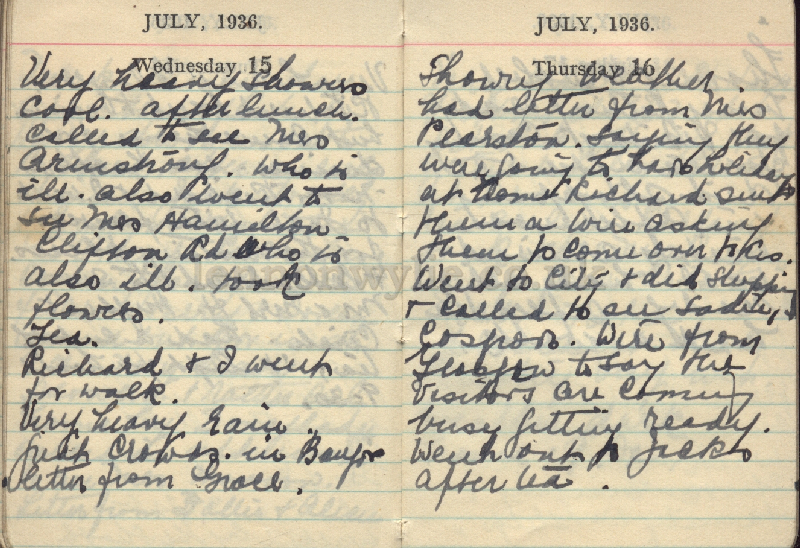 JULY, 1936.
Wednesday 15
Very heavy showers
cool. after lunch.
called to see Mrs
Armstrong. who is
ill. also I went to
see Mrs Hamilton
Clifton Rd who is
also ill. took
flowers.
Tea.
Richard & I went
for walk.
Very heavy rain.
great crowds. in Bangor
letter from Grace.
JULY, 1936.
Thursday 16
Showry weather.
had letter from Mrs
Pearston. saying they
were going to have holiday
at home Richard sent
them a wire asking
them to come over to us.
Went to City & did shopping
& called to see Sadie,
Wire from
Glasgow to say the
visitors are coming
busy getting ready.
Went out to Jacks
after tea.
lennonwylie